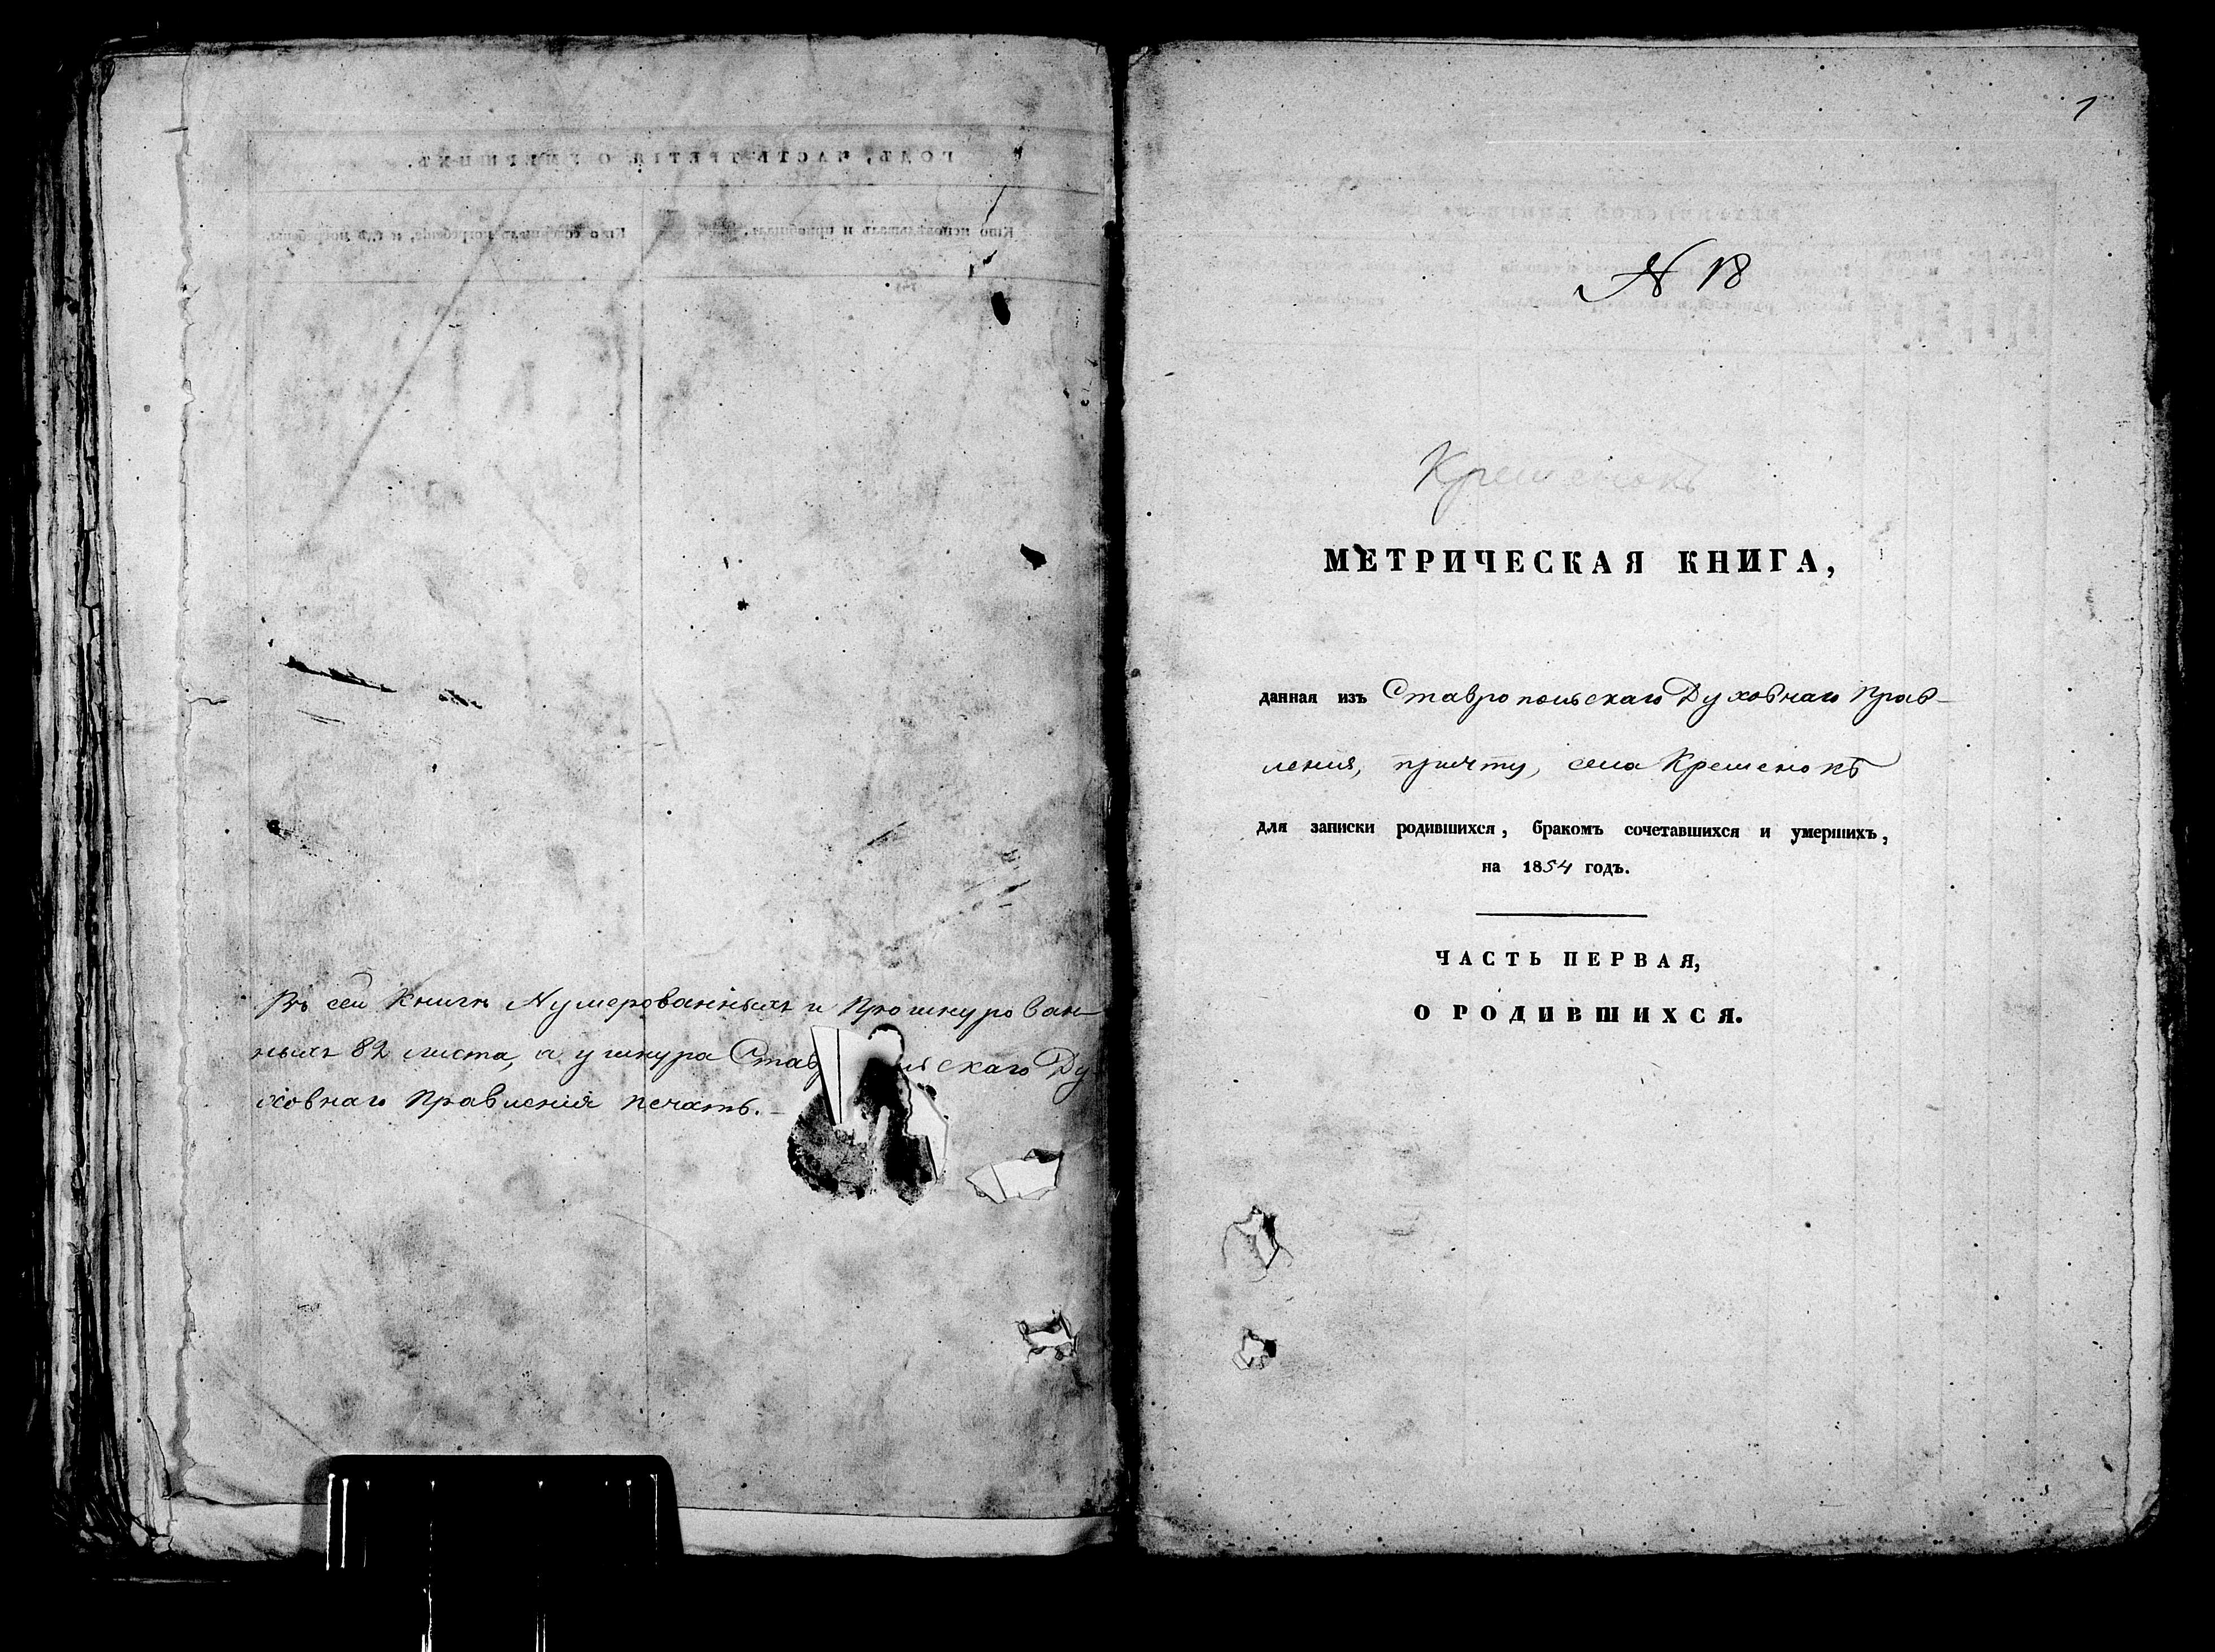 Въ сей Книгѣ Нумерованныхъ и Прошнурован-
ныхъ 82 листа, а у шнура Став скаго Ду-
ховнаго Правленія печать.
1
N 18
Крешенокъ
МЕТРИЧЕСКАЯ КНИГА,
данная изъ Ставропольскаго Духовнаго Прав-
ленія, причту, села Крешенокъ
для записки родившихся, бракомъ сочетавшихся и умершихъ,
на 1854 годъ.
ЧАСТЬ ПЕРВАЯ,
О РОДИВШИХСЯ.